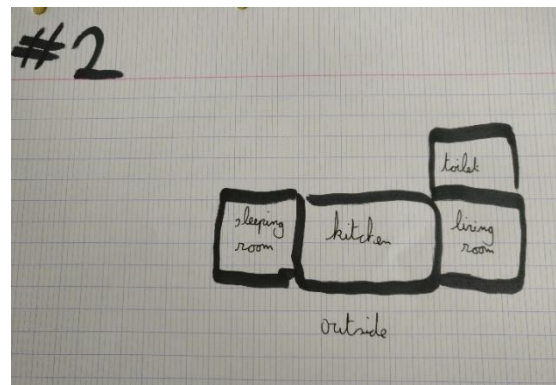 #2
toilet
sleeping
room
kitchen
living
room
outside